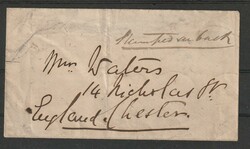 Stamped on back
Mrs Waters
14 Nicholas St
England. Chester.